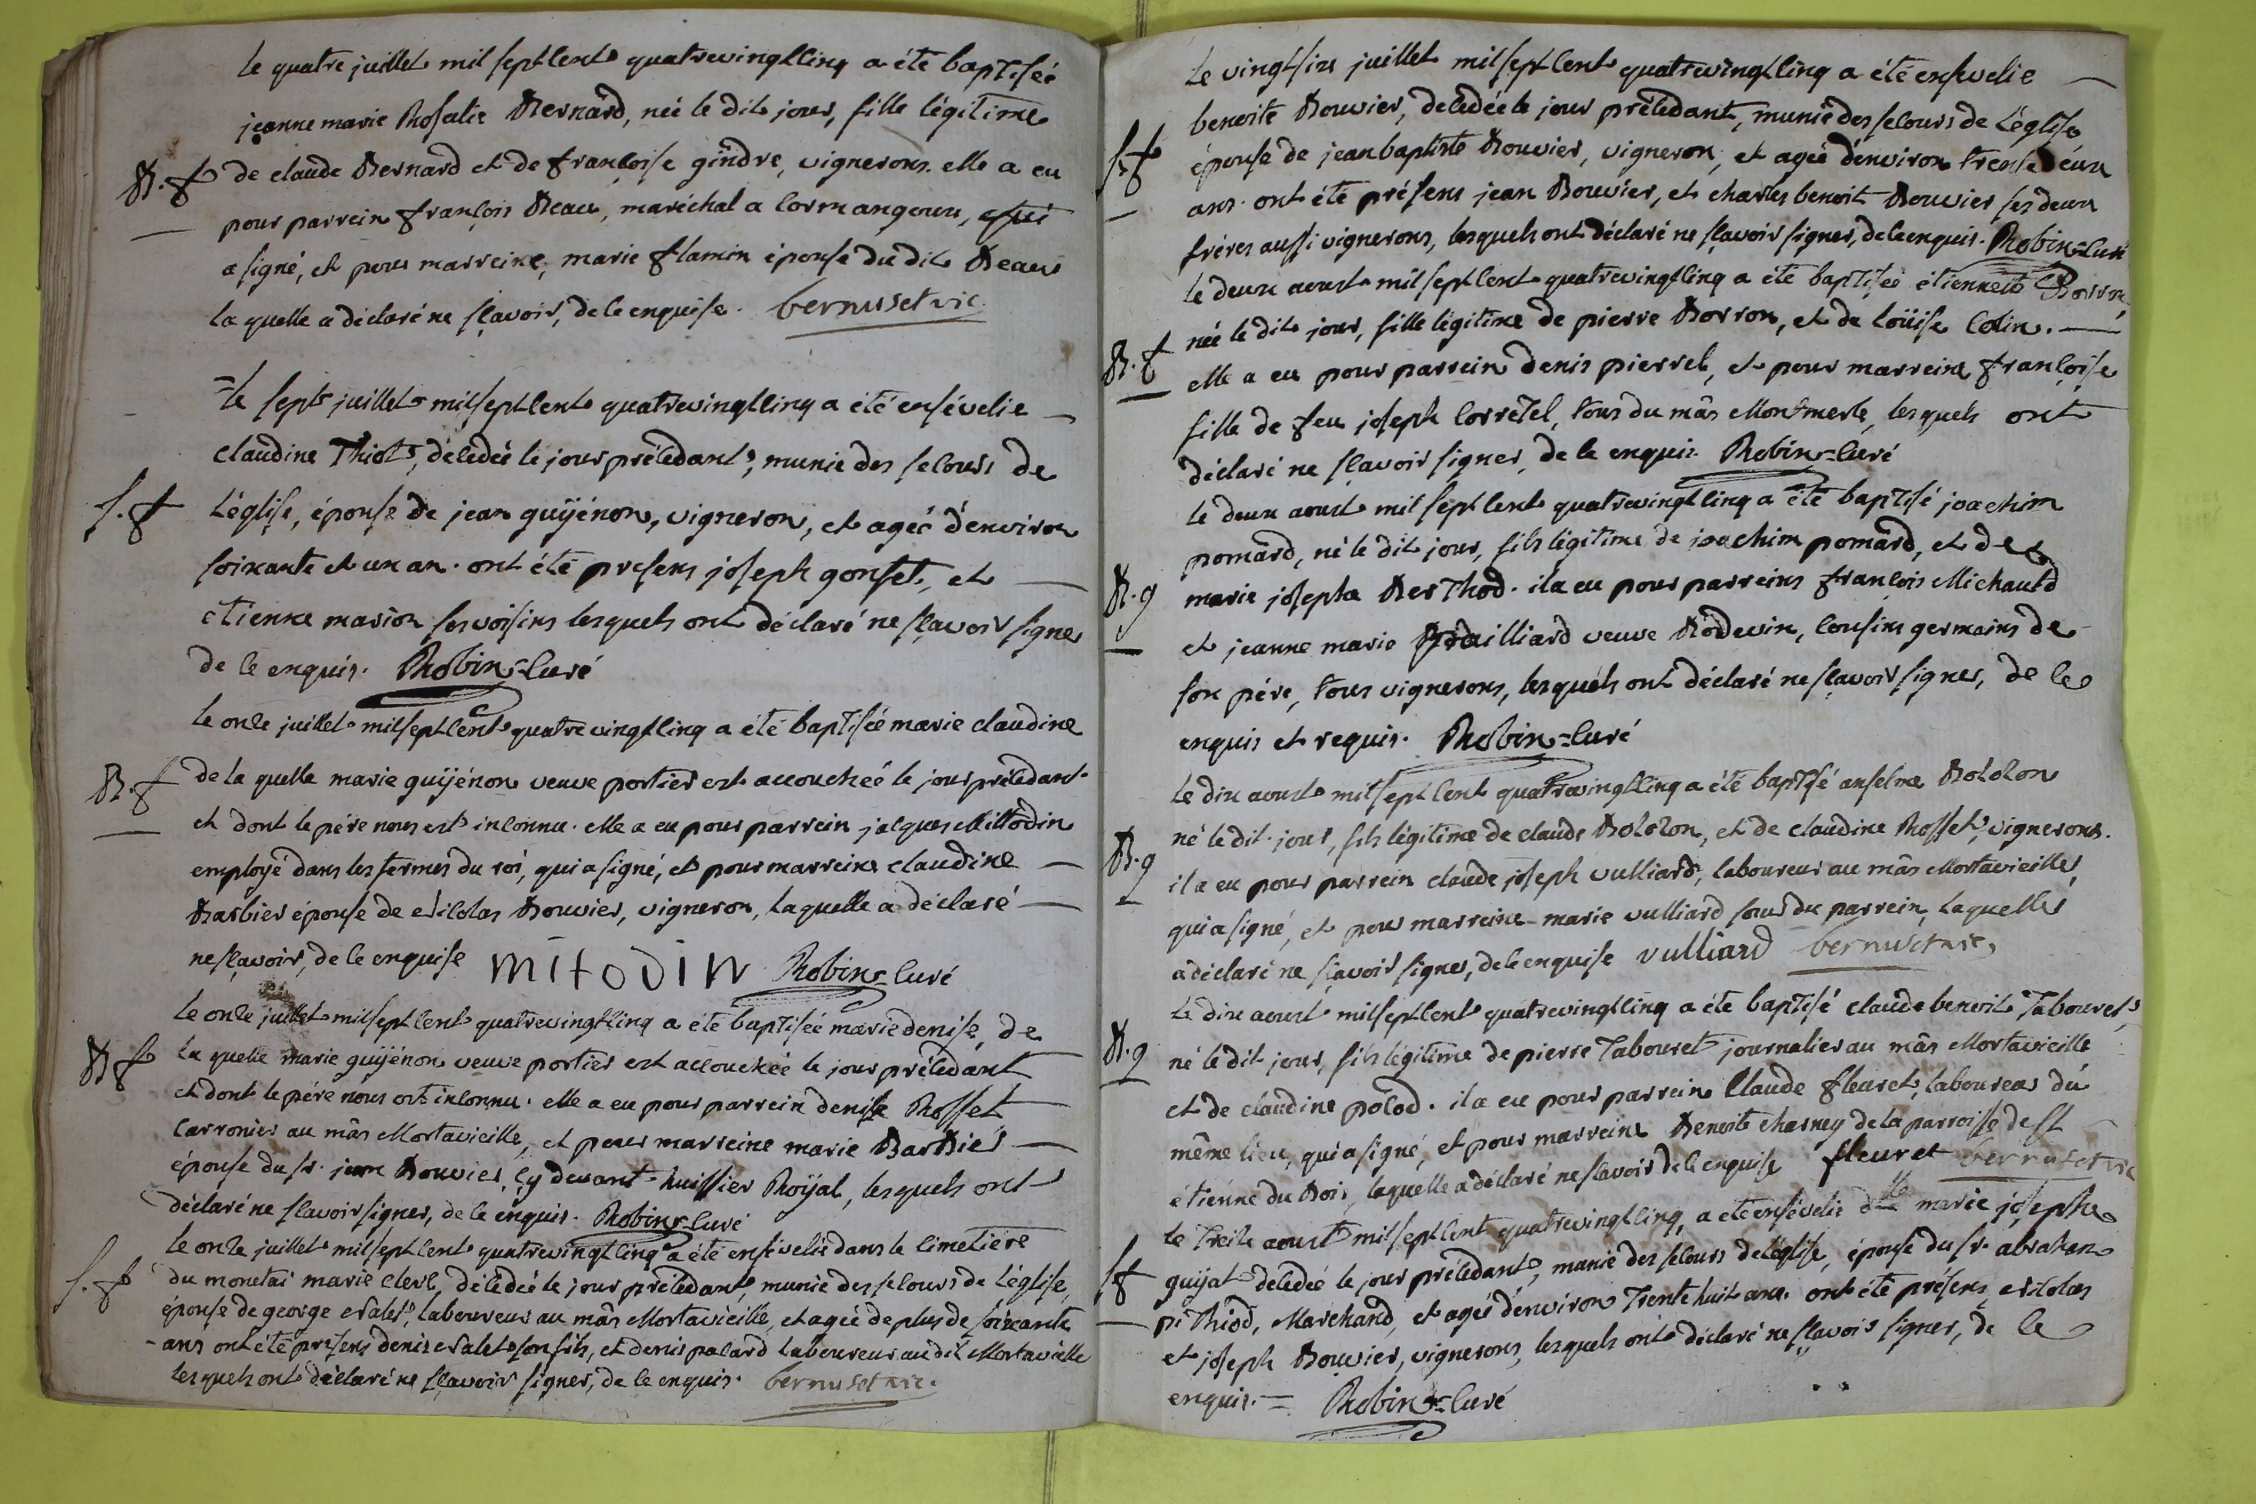 le quatre juillet mil sept cent quatrevingtcinq a été baptisée
jeanne marie Rosalie Bernard, née le dit jour, fille légitime
B. f de claude Bernard et de françoise gindre, vignerons. elle a eu
pour parrein françois Beau, maréchal a cormangoux, qui
a signé, et pour marreine, marie flamin épouse du dit Beau
la quelle a déclaré ne sçavoir, de ce enquise. bernusset vic.
le sept juillet mil sept cent quatrevingtcinq a été ensévelie
claudine Thiot, décedée le jour précedant, munie des secours de
S. f L'église, épouse de jean guÿénon, vigneron, et agée d'environ
soixante et un an. ont été presens joseph gonset, et
etienne marion ses voisins lesquels ont déclaré ne sçavoir signer
de ce enquis. Robin=curé
le onze juillet mil sept cent quatrevingtcinq a été baptisée marie claudine
B. f de la quelle marie guÿénon veuve portier est accouchée le jour précedant
et dont le pére nous est inconnu. elle a eu pour parrein jacques Mittodin
employé dans les fermes du roi, qui a signé, et pour marreine claudine
Barbier épouse de Nicolas Bouvier, vigneron, laquelle a déclaré
ne sçavoir, de ce enquise mitodin Robin=curé
le onze juillet mil sept cent quatrevingtcinq a été baptisée marie denise, de
B f la quelle marie guÿénon veuve portier est accouchée le jour précedant
et dont le pére nous est inconnu. elle a eu pour parrein denise Rosset
carronier au mâs Mortavieille, et pour marreine marie Barbier
épouse du sr. jean Bouvier, cy devant huissier Roÿal, lesquels ont
déclaré ne sçavoir signer, de ce enquis. Robin=curé
le onze juillet mil sept cent quatrevingtcinq a été ensévelie dans le cimetiére
S. f du monetai marie clerc, décedée le jour précedant, munie des secours de L'église,
épouse de george Nalet, laboureur au mâs Mortavieille, et agée de plus de soixante
ans ont été presens denis Nalet son fils, et denis palard laboureur au dit Mortavieille
lesquels ont déclaré ne sçavoir signer, de ce enquis. bernuset vic.
le vingtsix juillet mil sept cent quatrevingtcinq a été ensevelie
benoite Bouvier, decedée le jour précedant, munie des secours de L'église
S. f épouse de jean baptiste Bouvier, vigneron, et agée d'environ trente deux
ans. ont été présens jean Bouvier, et charles benoit Bouvier ses deux
fréres aussi vignerons, lesquels ont déclaré ne sçavoir signer, de ce enquis. Robin=curé
le deux aoust mil sept cent quatrevingtcinq a été baptisée étiennete Borron,
née le dit jour, fille légitime de pierre Borron, et de Loüise Colin.
B. f elle a eu pour parrein denis pierrel, et pour marreine françoise
fille de feu joseph Corretel, tous du mâs Montmerle, lesquels ont
déclaré ne sçavoir signer, de ce enquis. Robin=curé
le deux aoust mil sept cent quatrevingtcinq a été baptisé joachim
pomard, né le dit jour, fils légitime de joachim pomard, et de
B. g marie josepte Berthod. il a eu pour parreins françois Michauld
et jeanne marie veuve Bodevin, cousins germains de
son pére, tous vignerons, lesquels ont déclaré ne sçavoir signer, de ce
enquis et requis. Robin=curé
le dix aoust mil sept cent quatrevingtcinq a été baptisé anselme Bolozon
né le dit jour, fils légitime de claude Bolozon, et de claudine Rosset, vignerons.
B. g il a eu pour parrein claude joseph vulliard, laboureur au mâs Mortavieille,
qui a signé, et pour marreine marie vulliard sœur du parrein, laquelle
a déclaré ne sçavoir signer, de ce enquise vulliard bernuset vic.
le dix aoust mil sept cent quatrevingtcinq a été baptisé claude benoit Tabouret,
B. g né le dit jour, fils légitime de pierre Tabouret journalier au mâs Mortavieille
et de claudine polod. il a eu pour parrein Claude fleuret, laboureur du
même lieu, qui a signé, et pour marreine Benoite charney de la parroisse de St
étienne du Bois, laquelle a déclaré ne sçavoir de ce enquise fleuret bernuset vic
le treize aoust mil sept cent quatrevingtcinq, a été ensévelie dlle marie josephe
S f guÿat decedée le jour précedant, munie des secours de l'église, épouse du sr. abraham
piThiod, Marchand, et agée d'environ trente huit ans. ont été présens Nicolas
et joseph Bouvier, vignerons, lesquels ont déclaré ne sçavoir signer, de ce
enquis.= Robin=curé